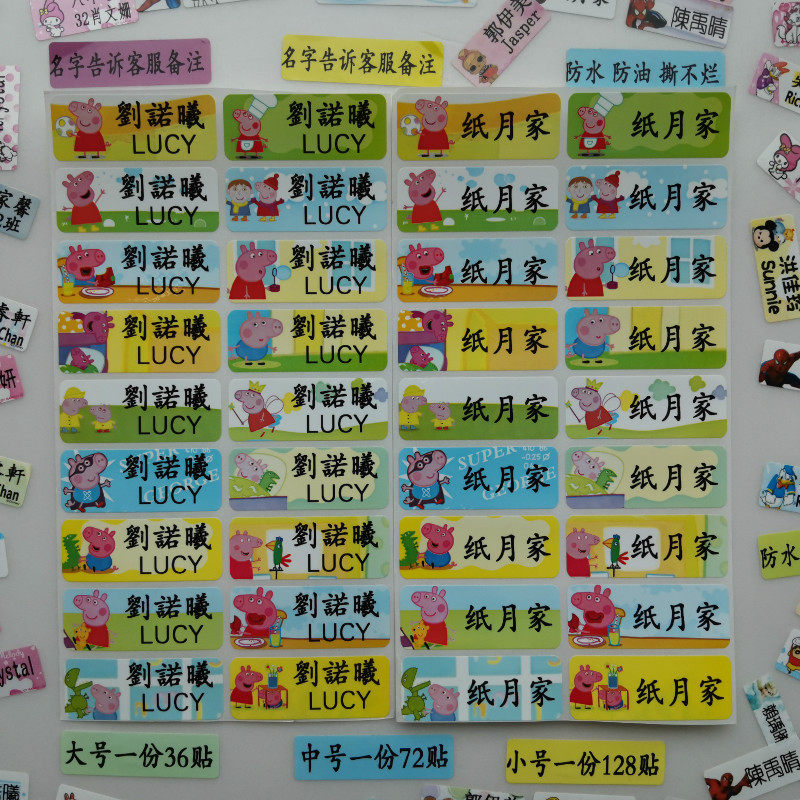 32肖文姗
LUCY
郭伊美
Jasper
陳禹晴
名字告诉客服备注
名字告诉客服备注
防水 防油 撕不烂
劉諾曦
LUCY
劉諾曦
LUCY
纸月家
纸月家
劉諾曦
LUCY
劉諾曦
LUCY
纸月家
纸月家
劉諾曦
LUCY
劉諾曦
LUCY
纸月家
纸月家
劉諾曦
LUCY
劉諾曦
LUCY
纸月家
纸月家
劉諾曦
LUCY
劉諾曦
LUCY
纸月家
纸月家
劉諾曦
LUCY
劉諾曦
LUCY
SUPER
GEORGE
纸月家
纸月家
劉諾曦
LUCY
劉諾曦
LUCY
纸月家
纸月家
劉諾曦
LUCY
劉諾曦
LUCY
纸月家
纸月家
劉諾曦
LUCY
劉諾曦
LUCY
纸月家
纸月家
Sunnie
防水
大号一份36贴
中号一份72贴
小号一份128贴
陳禹晴